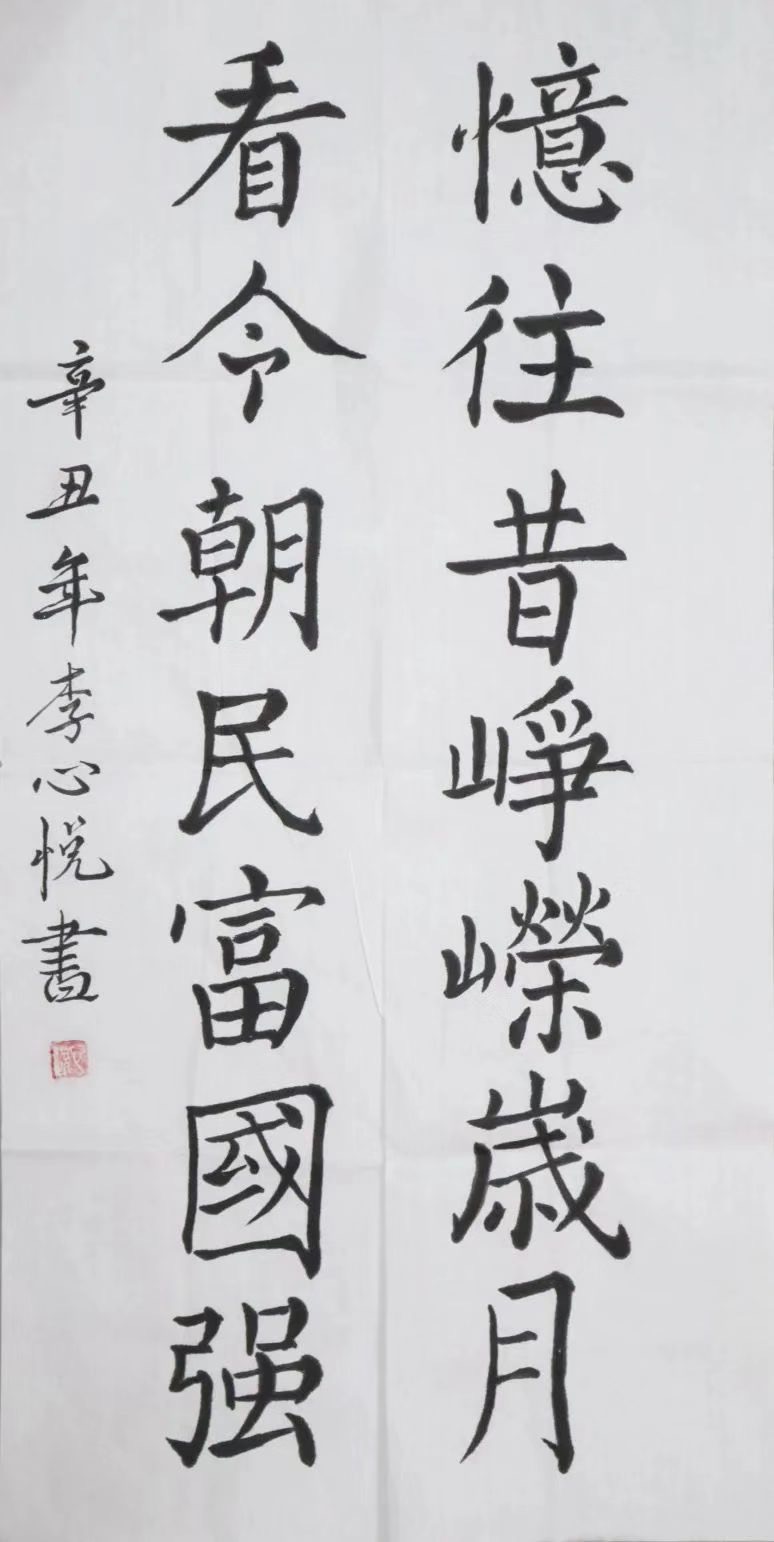 憶往昔崢嶸歲月
看今朝民富國强
辛丑年李心悦書